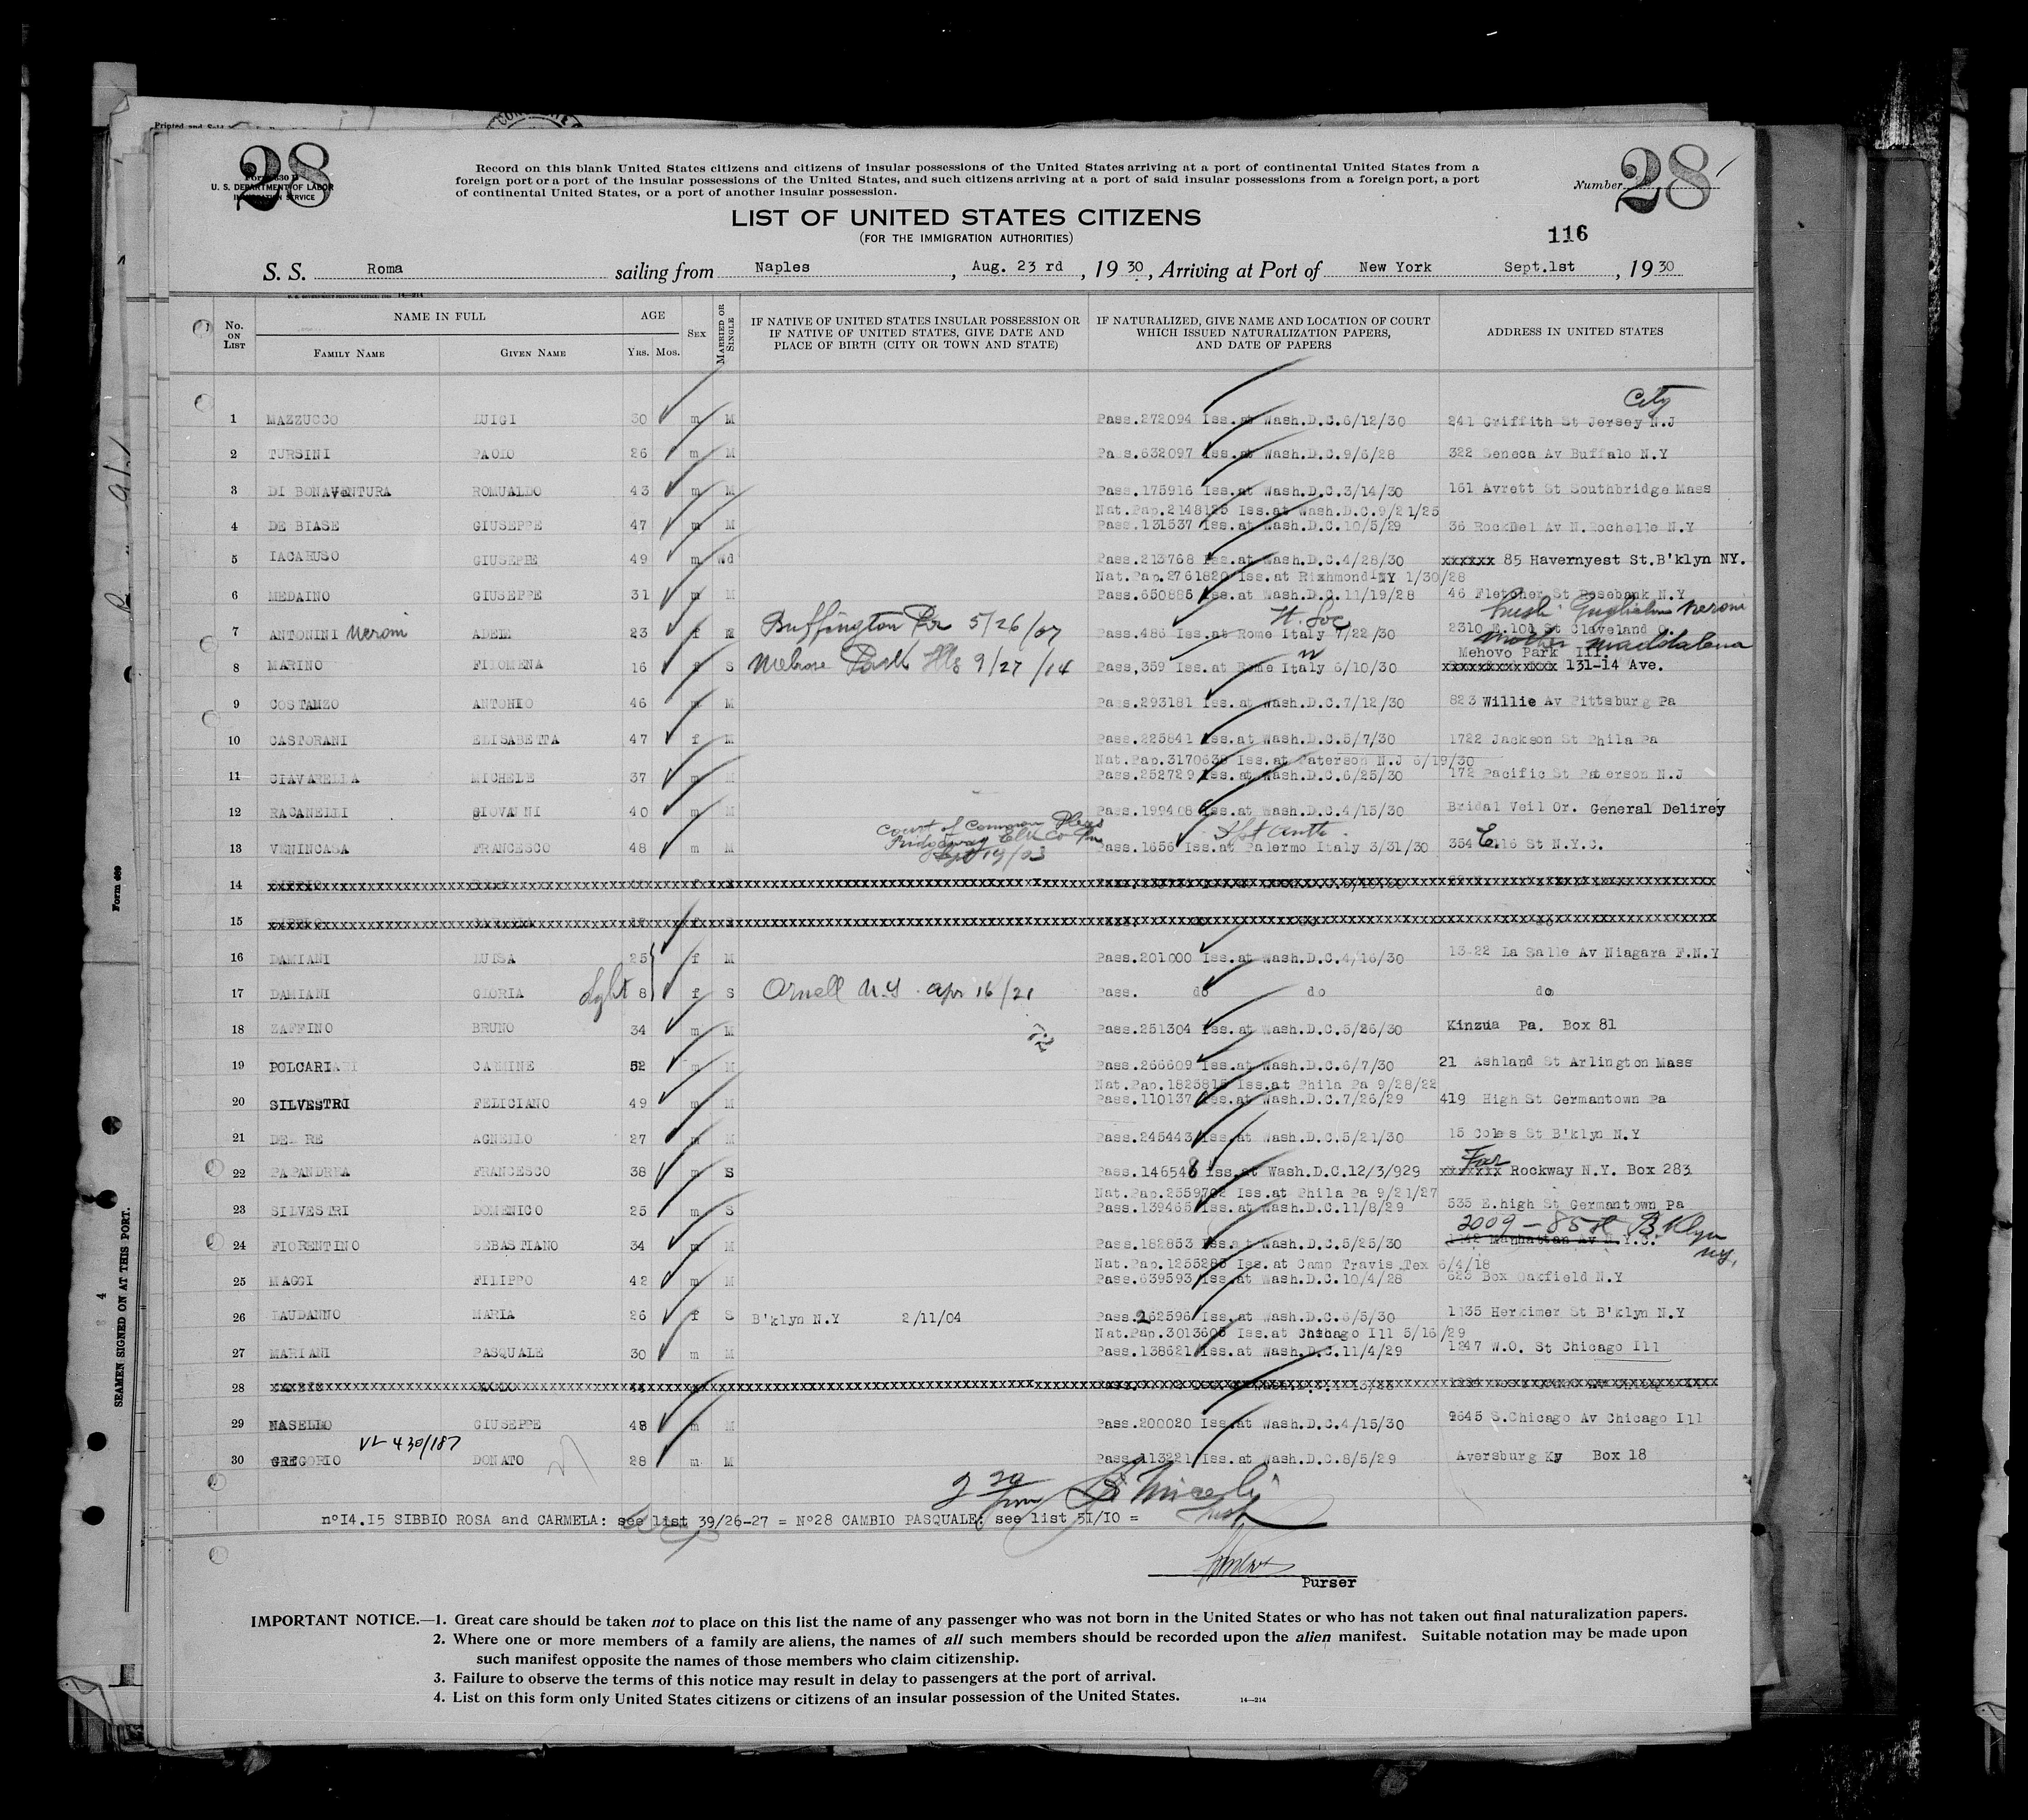 28
Form 630 B
U. S. DEPARTMENT OF LABOR
IMMIGRATION SERVICE
Record on this blank United States citizens and citizens of insular possessions of the United States arriving at a port of continental United States from a
foreign port or a port of the insular possessions of the United States, and such citizens arriving at a port of said insular possessions from a foreign port, a port
of continental United States, or a port of another insular possession.
Number 28
LIST OF UNITED STATES CITIZENS
(FOR THE IMMIGRATION AUTHORITIES)
116
S. S. Roma sailing from Naples, Aug. 23 rd, 1930, Arriving at Port of New York Sept.1st, 1930
No. ON LIST NAME IN FULL AGE SEX MARRIED OR SINGLE IF NATIVE OF UNITED STATES INSULAR POSSESSION OR IF NATIVE OF UNITED STATES, GIVE DATE AND PLACE OF BIRTH (CITY OR TOWN AND STATE) IF NATURALIZED, GIVE NAME AND LOCATION OF COURT WHICH ISSUED NATURALIZATION PAPERS, AND DATE OF PAPERS ADDRESS IN UNITED STATES
FAMILY NAME GIVEN NAME YRS. MOS.
City
1 MAZZUCCO LUIGI 30 m M Pass.272094 Iss.at Wash.D.C.6/12/30 241 Griffith St Jersey N.J
2 TURSINI PAOLO 26 m M Pass.632097 Iss.at Wash.D.C.9/6/28 322 Seneca Av Buffalo N.Y
3 DI BONAVENTURA ROMUALDO 43 m M Pass.175916 Iss.at Wash.D.C.3/14/30 161 Avrett St Southbridge Mass
Nat.Pap.2148125 Iss.at Wash.D.C.9/21/25
4 DE BIASE GIUSEPPE 47 m M Pass.131537 Iss.at Wash.D.C.10/5/29 36 RockDel Av N.Rochelle N.Y
5 IACARUSO GIUSEPPE 49 m Wd Pass.213768 Iss.at Wash.D.C.4/28/30 xxxxxx 85 Havernyest St.B'klyn NY.
Nat.Pap.2761820 Iss.at Rixhmond NY 1/30/28
6 MEDAINO GIUSEPPE 31 m M Pass.650885 Iss.at Wash.D.C.11/19/28 46 Fletcher St Rosebank N.Y
Husb Guglielmo Neroni
7 ANTONINI Neroni ADELE 23 f M Buffington Pa 5/26/07 Pass.486 Iss.at Rome Italy 7/22/30 2310 E.101 St Cleveland O.
mother Maddalena
Mehovo Park Ill.
8 MARINO FILOMENA 16 f S Melrose Park Ills 9/27/14 Pass,359 Iss.at Rome Italy 6/10/30 xxxxxxxxxxxxx 131-14 Ave.
9 COSTANZO ANTONIO 46 m M Pass.293181 Iss.at Wash.D.C.7/12/30 823 Willie Av Pittsburg Pa
10 CASTORANI ELISABETTA 47 f M Pass.225841 Iss.at Wash.D.C.5/7/30 1722 Jackson St Phila Pa
Nat.Pap.3170638 Iss.at Paterson N.J 6/19/30
11 CIAVARELLA MICHELE 37 m M Pass.252729 Iss.at Wash.D.C.6/25/30 172 Pacific St Paterson N.J
12 RACANELLI GIOVANNI 40 m M Pass.199408 Iss.at Wash.D.C.4/15/30 Bridal Veil Or. General Delirey
Court of Common Pleas
Ridgeway Elk Co Pa
Sept 19/03
13 VENINCASA FRANCESCO 48 m M Pass.1656 Iss.at Palermo Italy 3/31/30 354 E.16 St N.Y.C.
14
15
16 DAMIANI LUISA 25 f M Pass.201000 Iss.at Wash.D.C.4/16/30 13-22 La Salle Av Niagara F.N.Y
17 DAMIANI GLORIA 8 f S Ornell N.Y. Apr 16/21 Pass. do do do
18 ZAFFINO BRUNO 34 m M Pass.251304 Iss.at Wash.D.C.5/26/30 Kinzua Pa. Box 81
19 POLCARI CARMINE 52 m M Pass.266609 Iss.at Wash.D.C.6/7/30 21 Ashland St Arlington Mass
Nat.Pap.1825815 Iss.at Phila Pa 9/28/22
20 SILVESTRI FELICIANO 49 m M Pass.110137 Iss.at Wash.D.C.7/26/29 419 High St Germantown Pa
21 DEL RE AGNELLO 27 m M Pass.245443 Iss.at Wash.D.C.5/21/30 15 Coles St B'klyn N.Y
22 PAPANDREA FRANCESCO 38 m S Pass.146548 Iss.at Wash.D.C.12/3/929 xxxxxxx Far Rockway N.Y. Box 283
Nat.Pap.2559792 Iss.at Phila Pa 9/21/27
23 SILVESTRI DOMENICO 25 m S Pass.139465 Iss.at Wash.D.C.11/8/29 535 E.high St Germantown Pa
2009 - 85 st B'klyn
N.Y.
24 FIORENTINO SEBASTIANO 34 m M Pass.182853 Iss.at Wash.D.C.5/25/30 1142 Manhattan Av N.Y.C.
Nat.Pap.1255283 Iss.at Camp Travis Tex 6/4/18
25 MAGGI FILIPPO 42 m M Pass.639593 Iss.at Wash.D.C.10/4/28 623 Box Oakfield N.Y
26 LAUDANNO MARIA 26 f S B'klyn N.Y 2/11/04 Pass.262596 Iss.at Wash.D.C.6/5/30 1135 Herkimer St B'klyn N.Y
Nat.Pap.3013605 Iss.at Chicago Ill 5/16/29
27 MARIANI PASQUALE 30 m M Pass.138621 Iss.at Wash.D.C.11/4/29 1247 W.O. St Chicago Ill
28
29 NASELLO GIUSEPPE 48 m M Pass.200020 Iss.at Wash.D.C.4/15/30 9645 S.Chicago Av Chicago Ill
VL 430/187
30 GREGORIO DONATO 28 m M Pass.113221 Iss.at Wash.D.C.8/5/29 Aversburg Ky Box 18
nº14.15 SIBBIO ROSA and CARMELA: see list 39/26-27 = Nº28 CAMBIO PASQUALE: see list 51/10 =
Purser
IMPORTANT NOTICE.—1. Great care should be taken not to place on this list the name of any passenger who was not born in the United States or who has not taken out final naturalization papers.
2. Where one or more members of a family are aliens, the names of all such members should be recorded upon the alien manifest. Suitable notation may be made upon
such manifest opposite the names of those members who claim citizenship.
3. Failure to observe the terms of this notice may result in delay to passengers at the port of arrival.
4. List on this form only United States citizens or citizens of an insular possession of the United States.
14—214
Form 689
SEAMEN SIGNED ON AT THIS PORT.